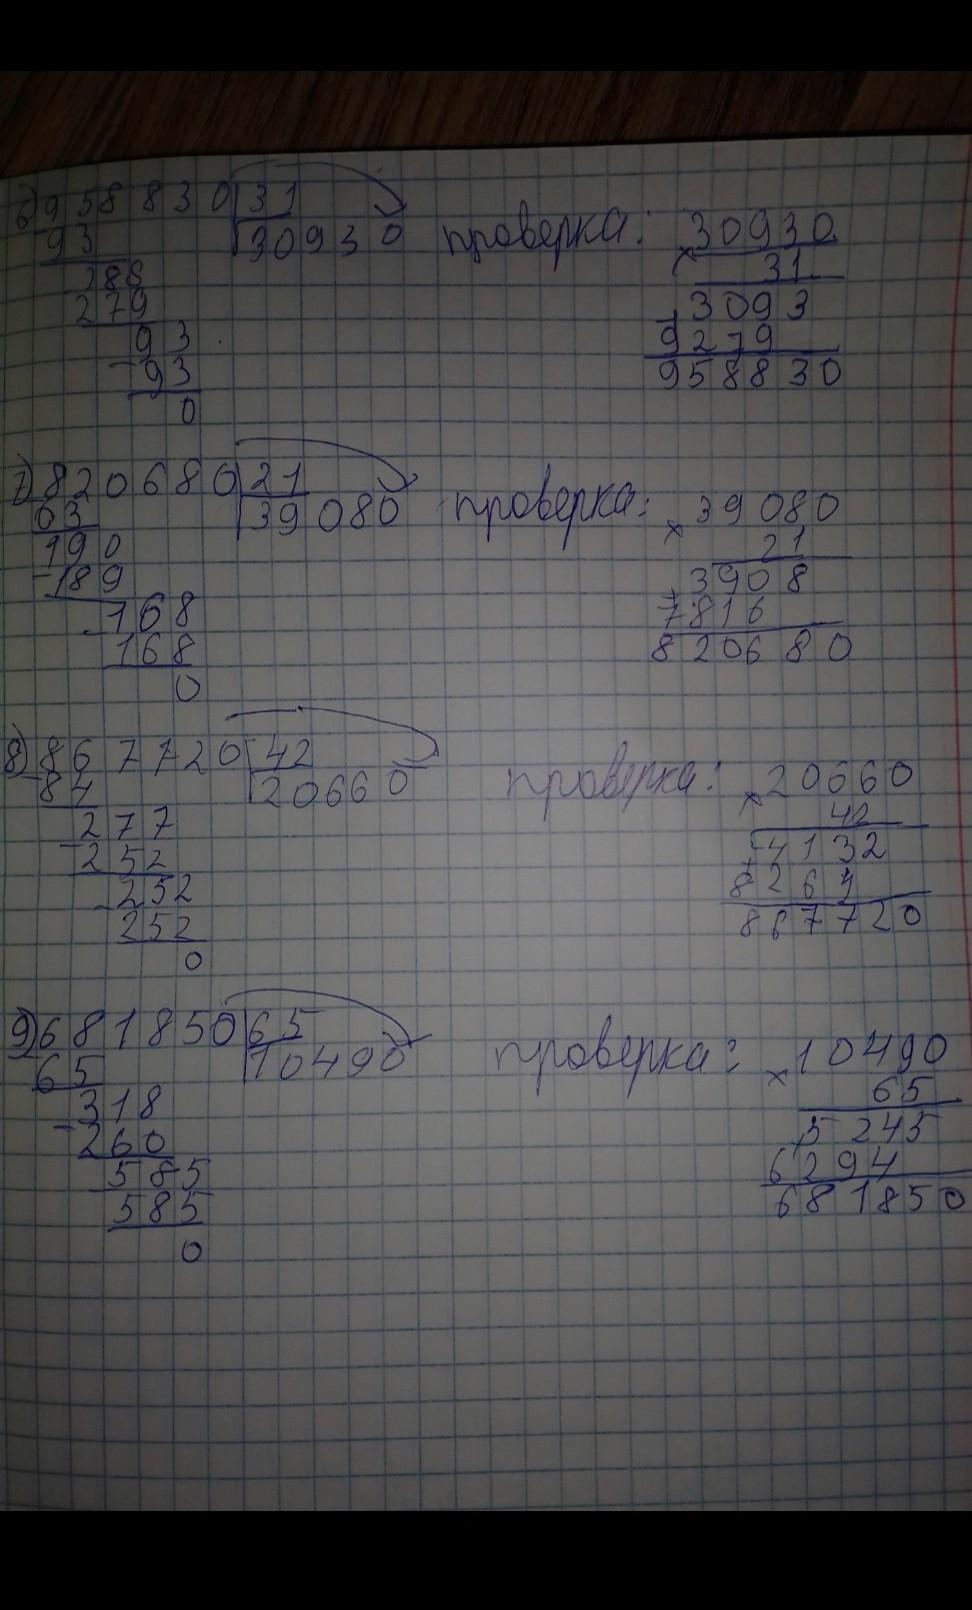 6) 958830 | 31
93 30930 проверка: 30930
288 × 31
279 3093
93 + 9279
- 93 958830
0
7) 820680 | 21
63 39080 проверка: × 39080
190 21
- 189 3908
- 168 + 7816
168 820680
0
8) 867720 | 42
- 84 20660 проверка: × 20660
277 42
- 252 4132
- 252 + 8264
252 867720
0
9) 681850 | 65
65 10490 проверка: × 10490
318 65
- 260 5245
- 585 + 6294
585 681850
0